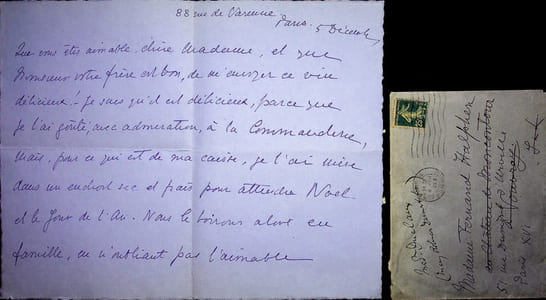 88 rue de Varenne
Paris. 5 Décembre,
Que vous êtes aimable, chère Madame, et que
Monsieur votre frère est bon, de m'envoyer ce vin
délicieux! Je sais qu'il est délicieux, parce que
je l'ai goûté, avec admiration, à la Commanderie,
mais, pour ce qui est de ma caisse, je l'ai mise
dans un endroit sec et frais pour attendre Noël
et le Jour de l'An. Nous le boirons alors en
famille, en n'oubliant pas l'aimable
Madame Fernand Halphen
Paris XVI